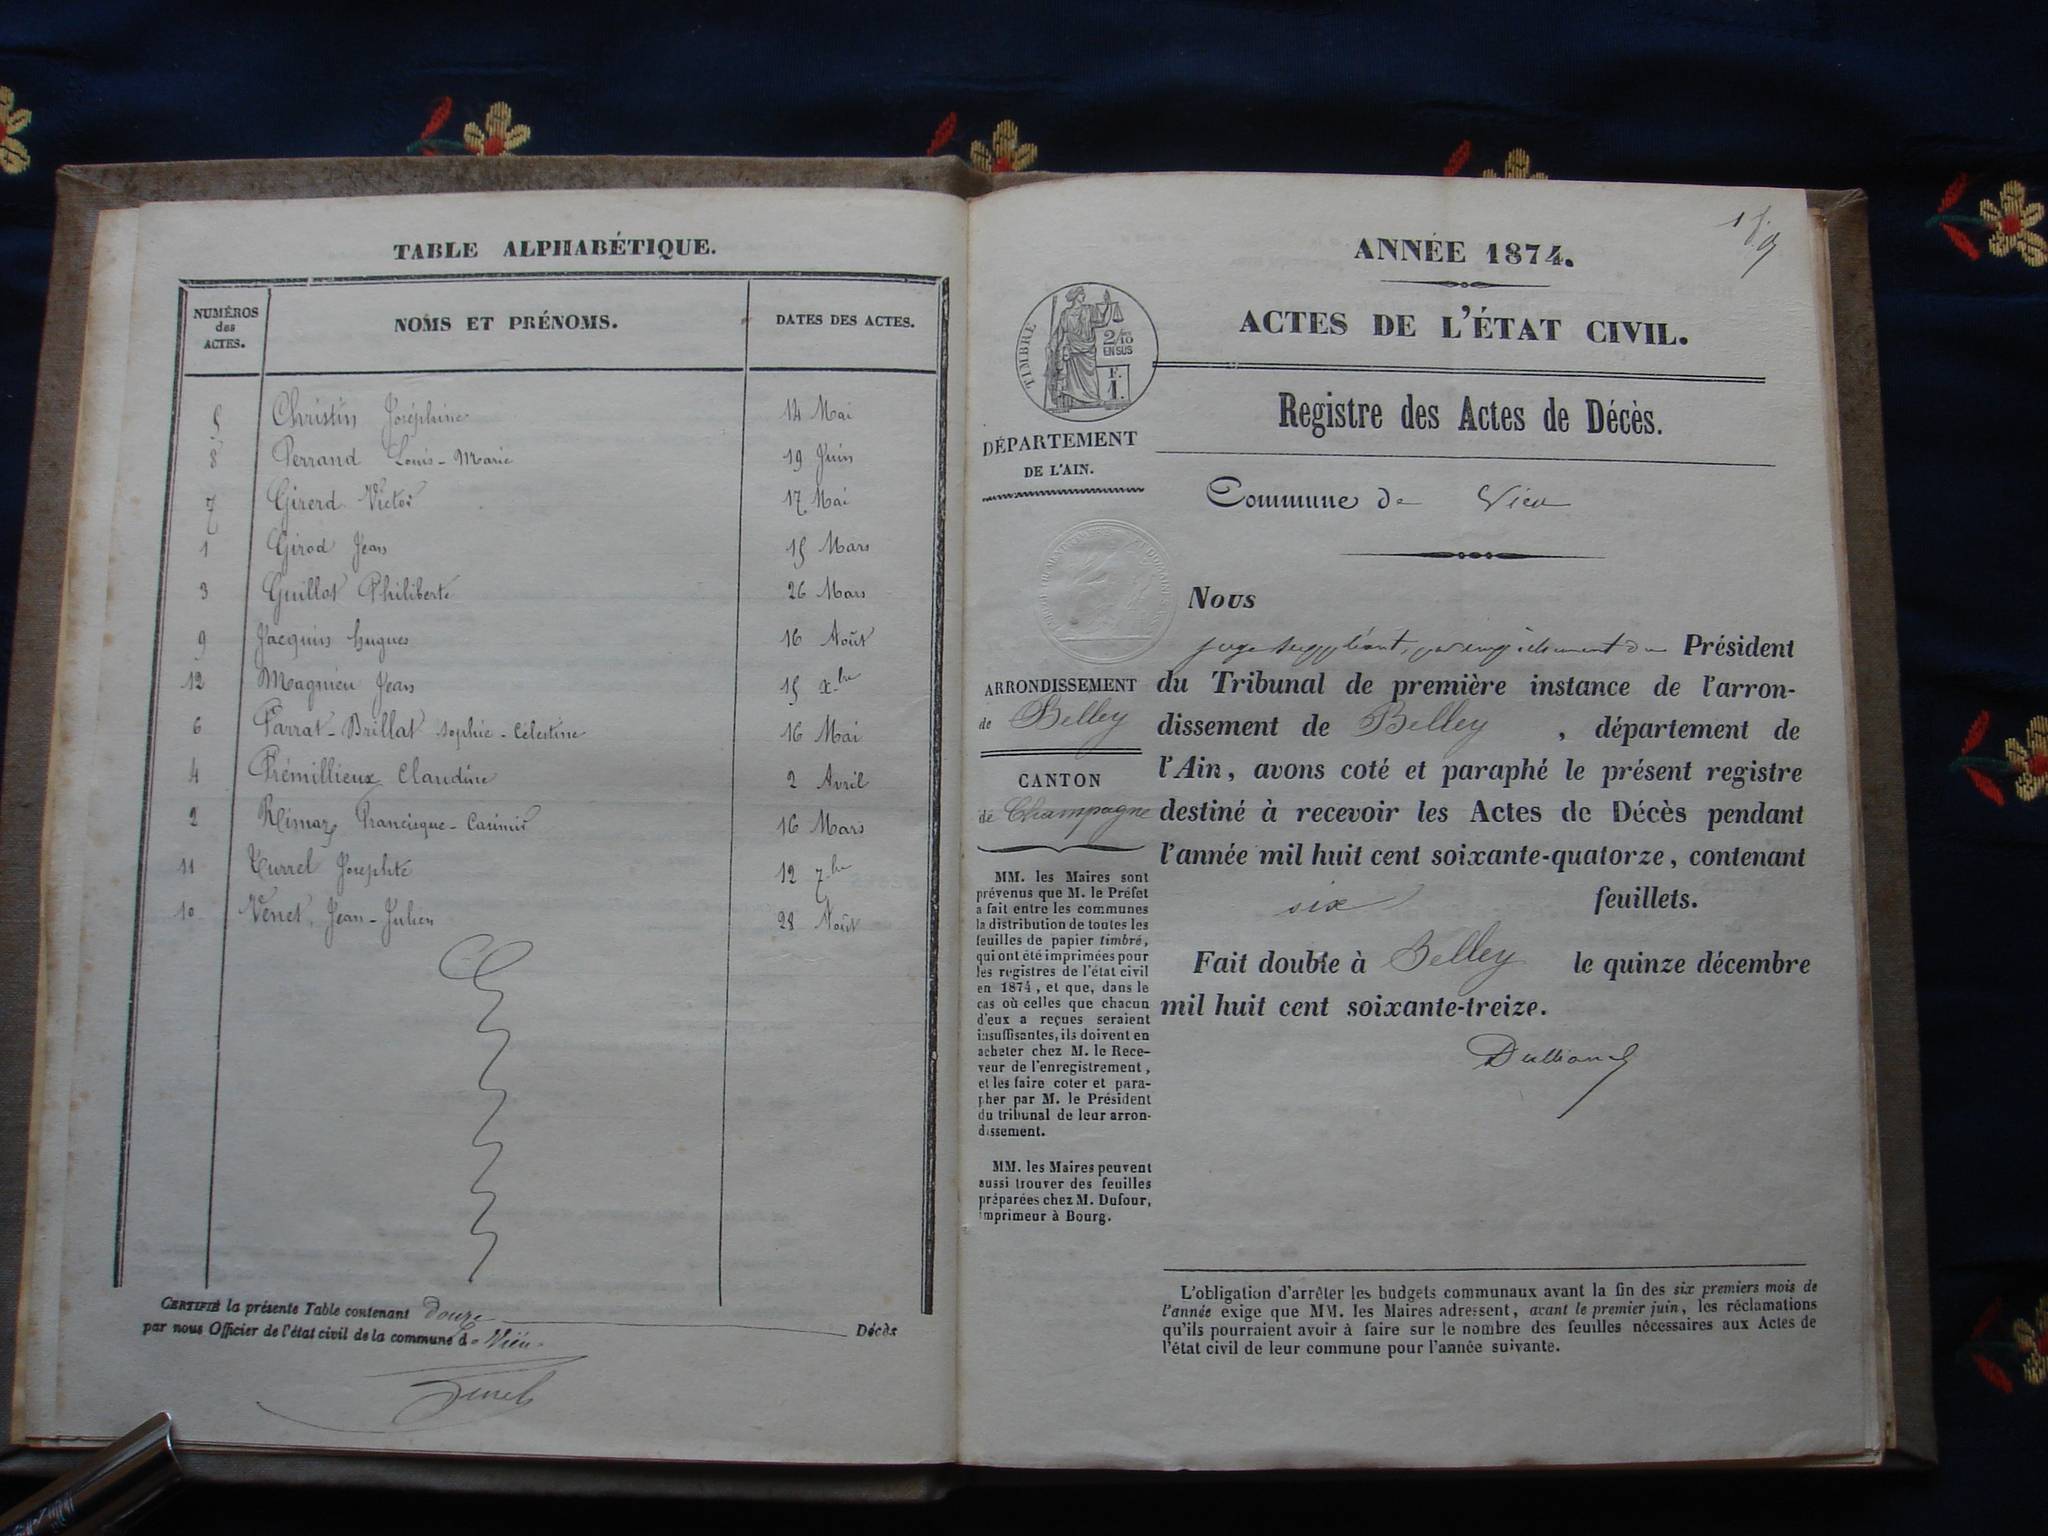 TABLE ALPHABÉTIQUE.
NUMÉROS
des
ACTES.
NOMS ET PRÉNOMS.
DATES DES ACTES.
5 Christin Joséphine 14 Mai
8 Ferrand Louis-Marie 19 Juin
7 Girerd Victor 17 Mai
1 Girod Jean 15 Mars
3 Guillot Philiberte 26 Mars
9 Jacquin Hugues 16 Août
12 Magnieu Jean 15 Xbre
6 Parrat-Brillat Sophie-Célestine 16 Mai
4 Prémillieux Claudine 2 Avril
2 Rimaz Francisque-Casimir 16 Mars
11 Turrel Josephte 12 7bre
10 Venet Jean-Julien 28 Août
CERTIFIÉ la présente Table contenant douze Décès
par nous Officier de l'état civil de la commune de Vieu
ANNÉE 1874.
ACTES DE L'ÉTAT CIVIL.
TIMBRE
2/10
EN SUS
F.
1.
Registre des Actes de Décès.
DÉPARTEMENT
DE L'AIN.
Commune de Vieu
Nous
juge suppléant, par empêchement du Président
du Tribunal de première instance de l'arron-
dissement de Belley, département de
l'Ain, avons coté et paraphé le présent registre
destiné à recevoir les Actes de Décès pendant
l'année mil huit cent soixante-quatorze, contenant
six feuillets.
Fait double à Belley le quinze décembre
mil huit cent soixante-treize.
ARRONDISSEMENT
de Belley
CANTON
de Champagne
MM. les Maires sont
prévenus que M. le Préfet
a fait entre les communes
la distribution de toutes les
feuilles de papier timbré,
qui ont été imprimées pour
les registres de l'état civil
en 1874, et que, dans le
cas où celles que chacun
d'eux a reçues seraient
insuffisantes, ils doivent en
acheter chez M. le Rece-
veur de l'enregistrement,
et les faire coter et para-
pher par M. le Président
du tribunal de leur arron-
dissement.
MM. les Maires peuvent
aussi trouver des feuilles
préparées chez M. Dufour,
imprimeur à Bourg.
L'obligation d'arrêter les budgets communaux avant la fin des six premiers mois de
l'année exige que MM. les Maires adressent, avant le premier juin, les réclamations
qu'ils pourraient avoir à faire sur le nombre des feuilles nécessaires aux Actes de
l'état civil de leur commune pour l'année suivante.